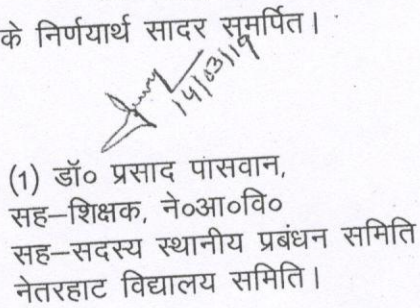 के निर्णयार्थ सादर समर्पित।
14/03/19
(1) डॉ० प्रसाद पासवान,
सह–शिक्षक, ने०आ०वि०
सह–सदस्य स्थानीय प्रबंधन समिति
नेतरहाट विद्यालय समिति।